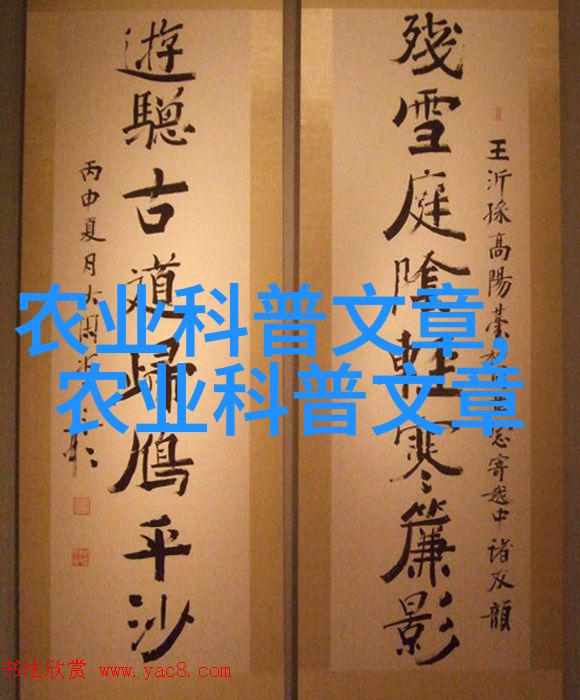 殘雪庭陰輕寒簾影
王沂孫高陽臺
寄越中諸友韻
遊驄古道歸鴈平沙
丙申夏月
农业科普文章,
农业科普文章
书法欣赏 www.yac8.com